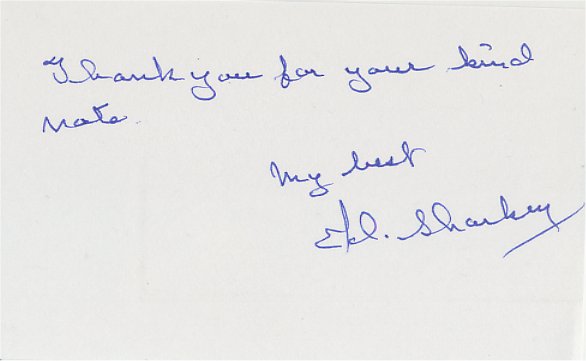 Thank you for your kind
note.
My best
Ed. Sharkey